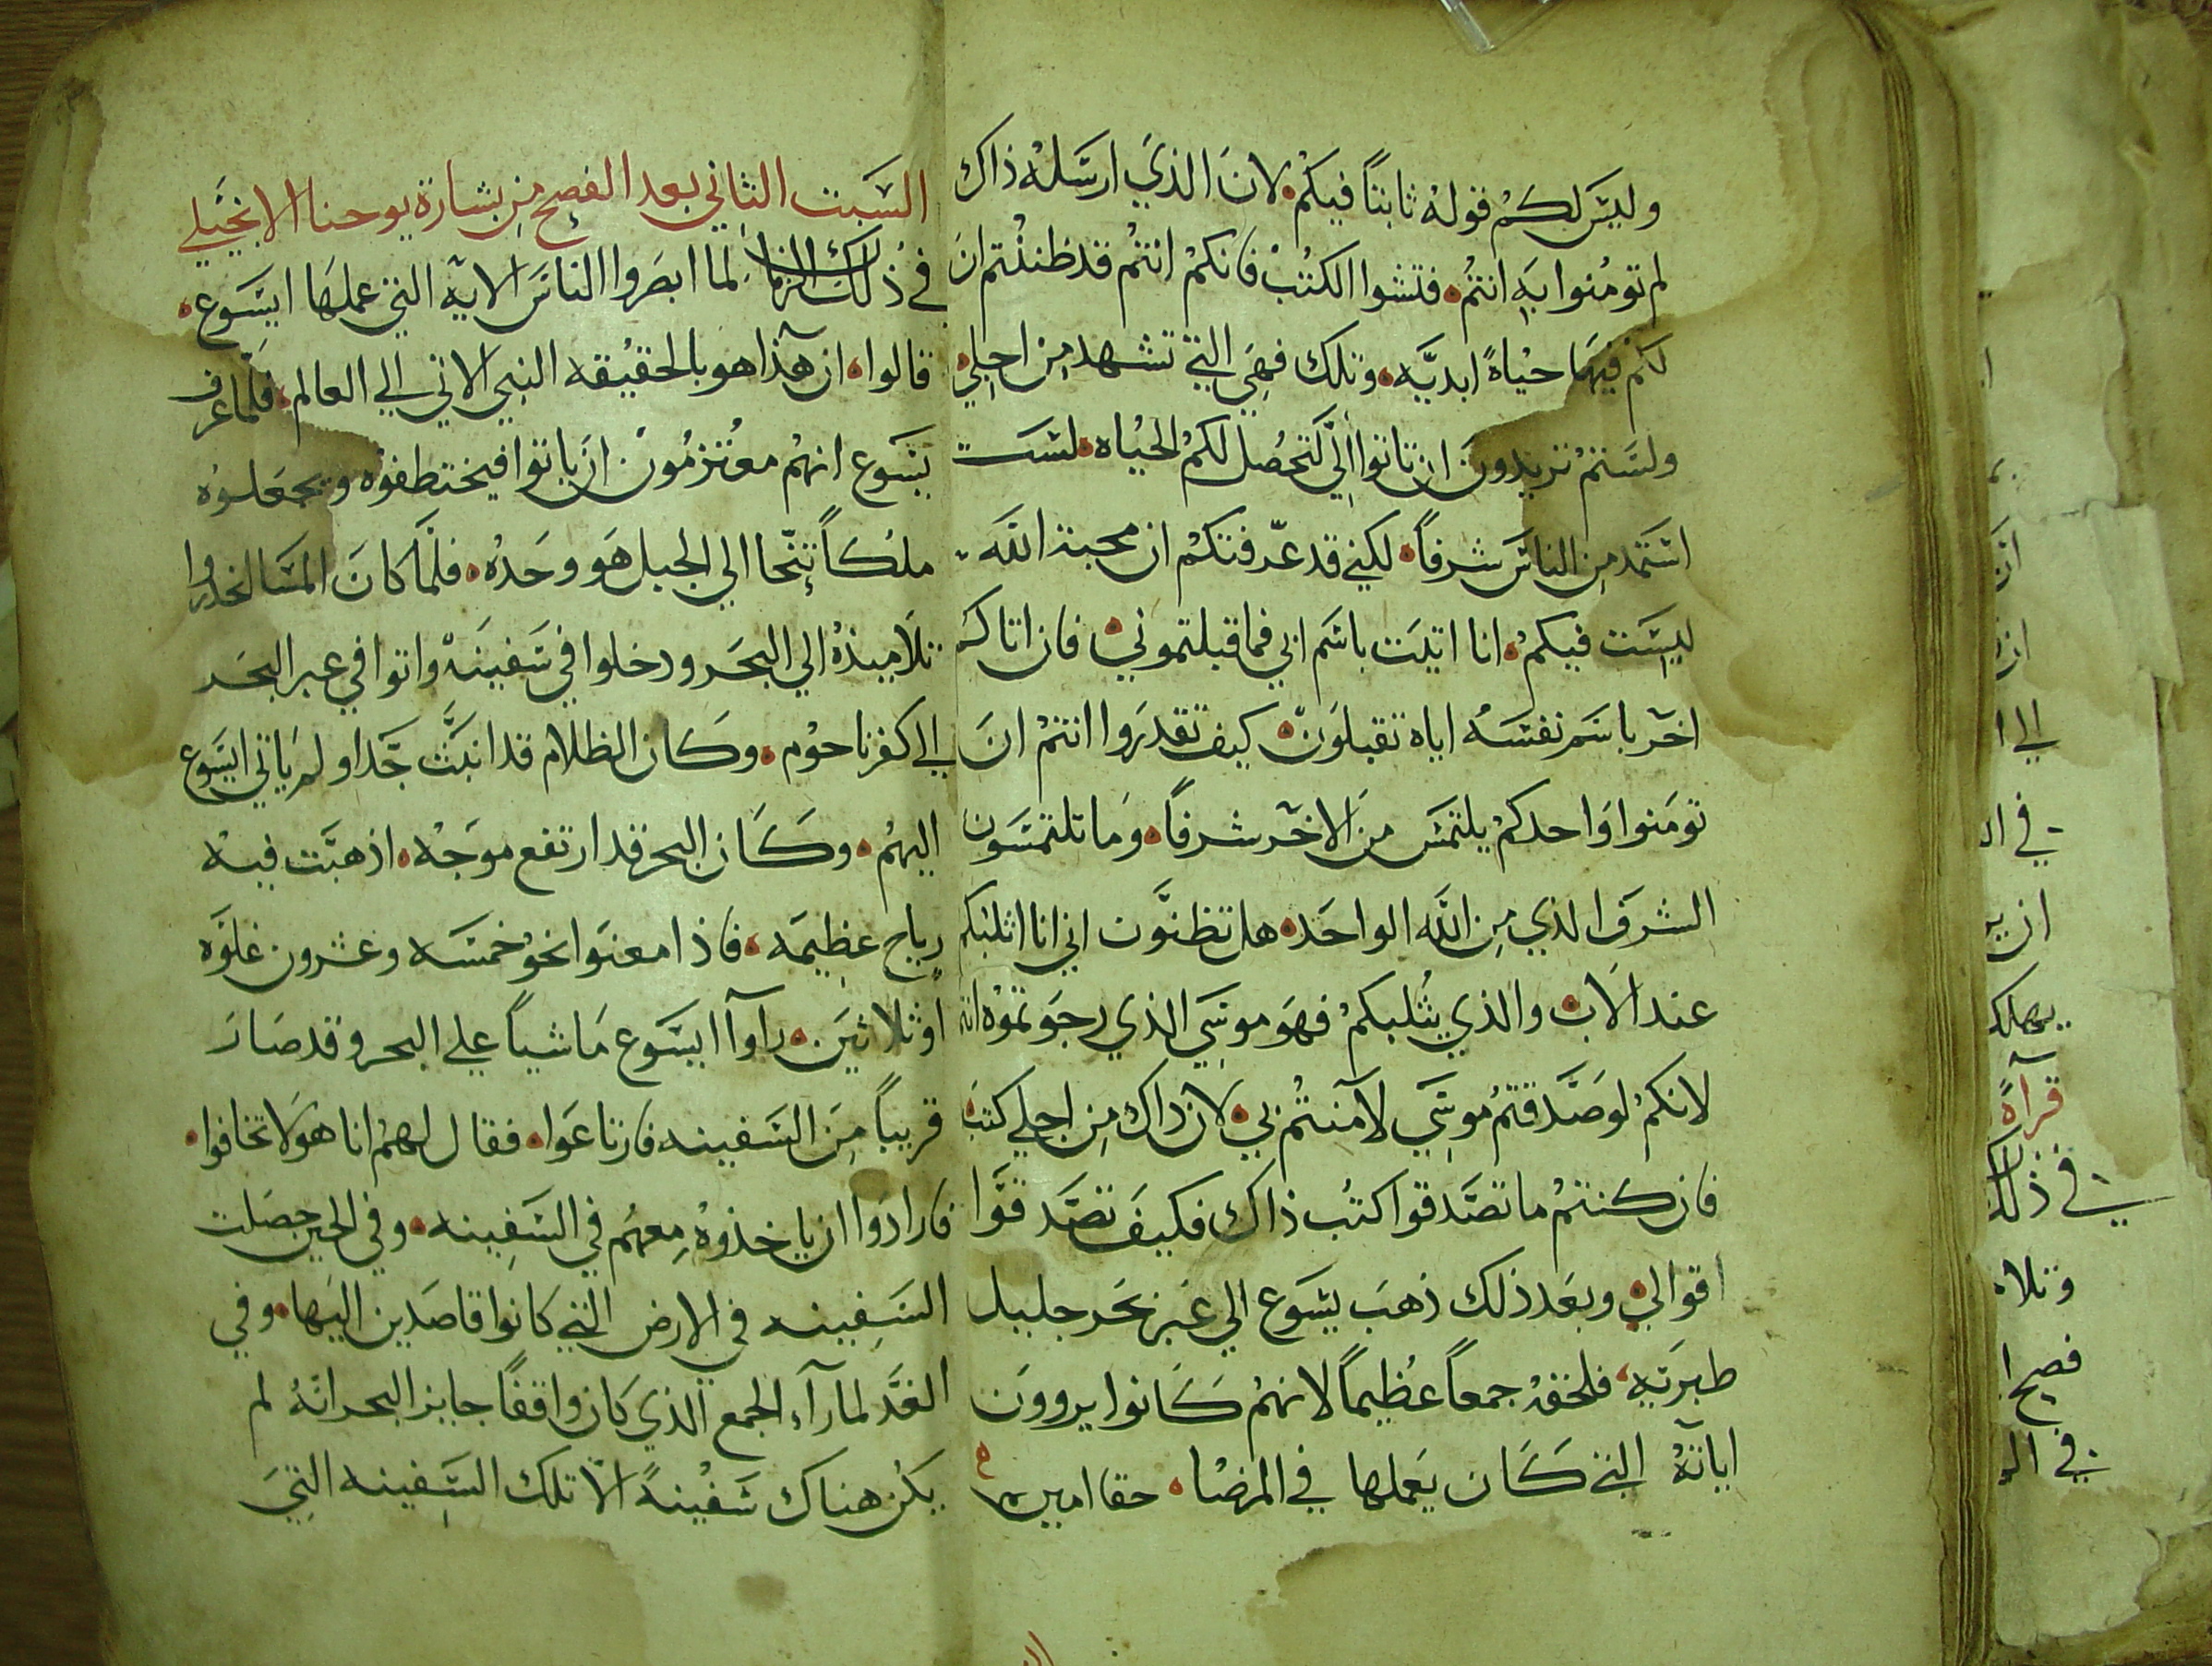 وليس لكم قوله ثابتاً فيكم لان الذي ارسله ذاك
لم تومنوا به انتم فتشوا الكتب فانكم انتم قد ظننتم ان
لكم فيها حياةً ابديَّه وتلك فهي التي تشهد من اجلي
ولستم تريدون ان تاتوا اليّ لتحصل لكم الحياه لست
استمد من الناس شرفاً لكني قد عرّفتكم ان محبة الله
ليست فيكم انا اتيت باسم ابي فما قبلتموني فان اتاكم
اخر باسم نفسه اياه تقبلون كيف تقدروا انتم ان
تومنوا واحدكم يلتمس من الاخر شرفاً وما تلتمسون
الشرف الذي من الله الواحد هل تظنّون اني انا اثلبكم
عند الاب والذي يثلبكم فهو موسي الذي رجوتموه انتم
لانكم لو صدَّقتم موسي لآمنتم بي لان ذاك من اجلي كتب
فان كنتم ما تصدقوا كتب ذاك فكيف تصدقوا
اقوالي وبعد ذلك ذهب يسوع الي عبر بحر جليل
طبرَيه فلحقه جمعاً عظيماً لانهم كانوا يروون
اياته التي كان يعملها في المرضا حقا امين
السبت الثاني بعد الفصح من بشارة يوحنا الانجيلي
في ذلك الزمان لما ابصروا الناس الايه التي عملها ايسوع
قالوا ان هذا هو بالحقيقه النبي الاتي الي العالم فلما عرف
يسوع انهم معتزمون ان ياتوا فيختطفوه ويجعلوه
ملكاً تنّحا الي الجبل هو وحده فلمّا كان المسا انحدروا
تلاميذه الي البحر ودخلوا في سفينه واتوا في عبر البحر
الي كفرناحوم وكان الظلام قد انبثّ جدا ولم ياتي ايسوع
اليهم وكان البحر قد ارتفع موجه اذ هبّت فيه
رياح عظيمه فاذا معنوا نحو خمسه وعشرون غلوَه
او ثلاثين راوآ ايسوع ماشياً علي البحر وقد صار
قريباً من السفينه فارتاعوا فقال لهم انا هو لا تخافوا
فارادوا ان ياخذوه معهم في السفينه وفي الحين حصلت
السفينه في الارض التي كانوا قاصدين اليها وفي
الغد لما رآء الجمع الذي كان واقفاً جايز البحر انه لم
يكن هناك سفينةً الّا تلك السفينه التي